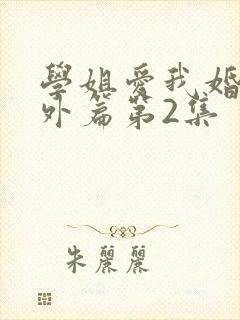 學姐愛我婚
外篇第2集
朱麗麗